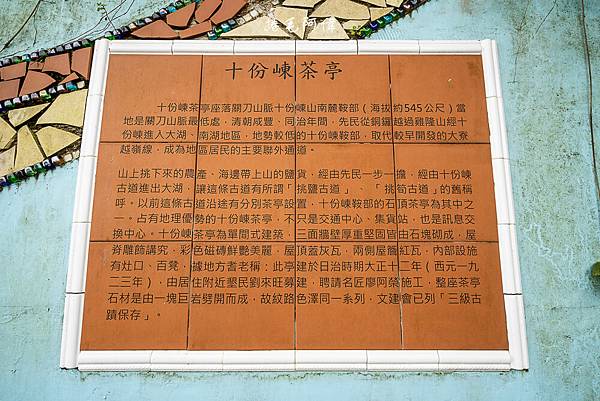 十份崠茶亭
十份崠茶亭座落關刀山脈十份崠山南麓鞍部（海拔約545公尺）當
地是關刀山脈最低處，清朝咸豐、同治年間，先民從銅鑼越過雞隆山經十
份崠進入大湖、南湖地區，地勢較低的十份崠鞍部，取代較早開發的大寮
越嶺線，成為地區居民的主要聯外通道。
山上挑下來的農產，海邊帶上山的鹽貨，經由先民一步一擔，經由十份崠
古道進出大湖，讓這條古道有所謂「挑鹽古道」、「挑筍古道」的舊稱
呼。以前這條古道沿途有分別茶亭設置，十份崠鞍部的石頂茶亭為其中之
一。占有地理優勢的十份崠茶亭，不只是交通中心、集貨站，也是訊息交
換中心。十份崠茶亭為單間式建築，三面牆壁厚重堅固皆由石塊砌成，屋
脊雕篩講究，彩色磁磚鮮艷美麗，屋頂蓋灰瓦，兩側屋簷紅瓦，內部設施
有灶口、百凳，據地方耆老稱，此亭建於日治時期大正十二年（西元一九
二三年），由居住附近墾民劉來旺募建，聘請名匠廖阿榮施工，整座茶亭
石材是由一塊巨岩劈開而成，故紋路色澤同一系列，文建會已列「三級古
蹟保存」。